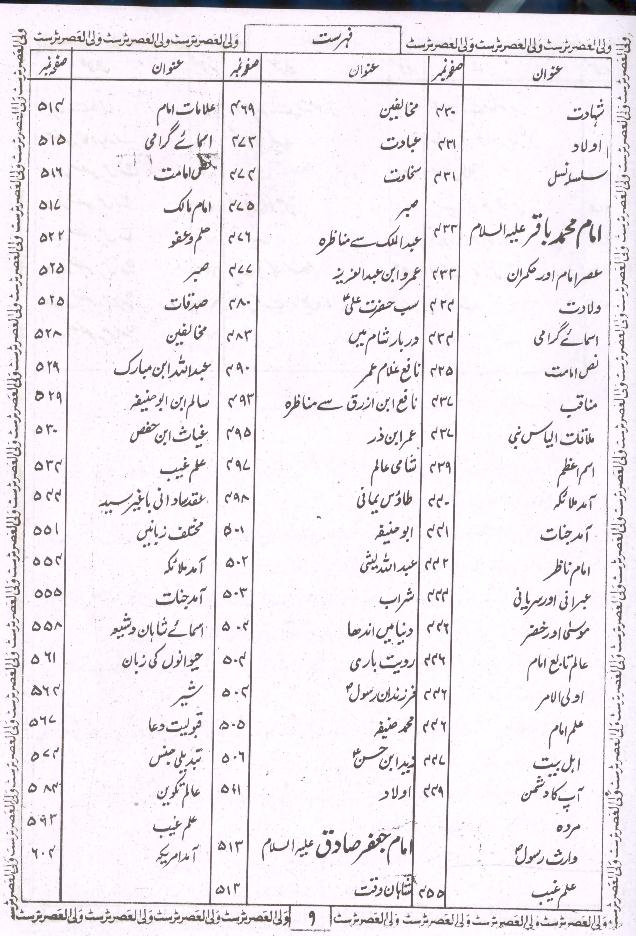 فہرست
عنوان صفحہ نمبر
شہادت ۴۳۰
اولاد ۴۳۱
سلسلہ نسل ۴۳۱
امام محمد باقر علیہ السلام ۴۳۳
عصر امام اور حکمران ۴۳۳
ولادت ۴۳۴
اسمائے گرامی ۴۳۴
نص امامت ۴۳۵
مناقب ۴۳۷
ملاقات الیاس نبی ۴۳۷
اسم اعظم ۴۳۹
آمد ملائکہ ۴۴۰
آمد جنات ۴۴۱
امام ناظر ۴۴۲
عبرانی اور سریانی ۴۴۴
موسیٰ اور خضر ۴۴۶
عالم تابع امام ۴۴۶
اولی الامر ۴۴۶
علم امام ۴۴۶
اہل بیت ۴۴۷
آپ کا دشمن ۴۴۹
مردہ
وارث رسولؐ
علم غیب ۴۵۵
عنوان صفحہ نمبر
مخالفین ۴۶۹
عبادت ۴۷۳
سخاوت ۴۷۴
صبر ۴۷۵
عبدالملک سے مناظرہ ۴۷۶
عمرو ابن عبدالعزیز ۴۷۷
سب حضرت علیؑ ۴۸۰
دربار شام میں ۴۸۳
نافع غلام عمر ۴۹۰
نافع ابن ازرق سے مناظرہ ۴۹۳
عمر ابن ذر ۴۹۵
شامی عالم ۴۹۷
طاؤس یمانی ۴۹۸
ابو حنیفہ ۵۰۱
عبداللہ لیثی ۵۰۲
شراب ۵۰۳
دنیا میں اندھا ۵۰۴
رویت باری ۵۰۴
فرزندان رسولؐ ۵۰۴
محمد حنیفہ ۵۰۵
زید ابن حسنؑ ۵۰۶
اولاد ۵۱۱
امام جعفر صادق علیہ السلام ۵۱۳
شاہان وقت ۵۱۳
عنوان صفحہ نمبر
علامات امام ۵۱۴
اسمائے گرامی ۵۱۵
نص امامت ۵۱۶
امام مالک ۵۱۷
حلم و عفو ۵۲۲
صبر ۵۲۵
صدقات ۵۲۵
مخالفین ۵۲۸
عبداللہ ابن مبارک ۵۲۹
سالم ابن ابو حنیفہ ۵۲۹
غیاث ابن حفص ۵۳۰
علم غیب ۵۳۴
عقد صادانی باغیر سید ۵۴۴
مختلف زبانیں ۵۵۱
آمد ملائکہ ۵۵۴
آمد جنات ۵۵۵
اسمائے شاہان و شیعہ ۵۵۸
حیوانوں کی زبان ۵۶۱
شیر ۵۶۴
قبولیت دعا ۵۶۷
تبدیلی جنس ۵۷۴
عالم تکوین ۵۸۴
علم غیب ۵۹۳
آمد امریکہ ۶۰۴
۹
ولی العصر ٹرسٹ ولی العصر ٹرسٹ ولی العصر ٹرسٹ